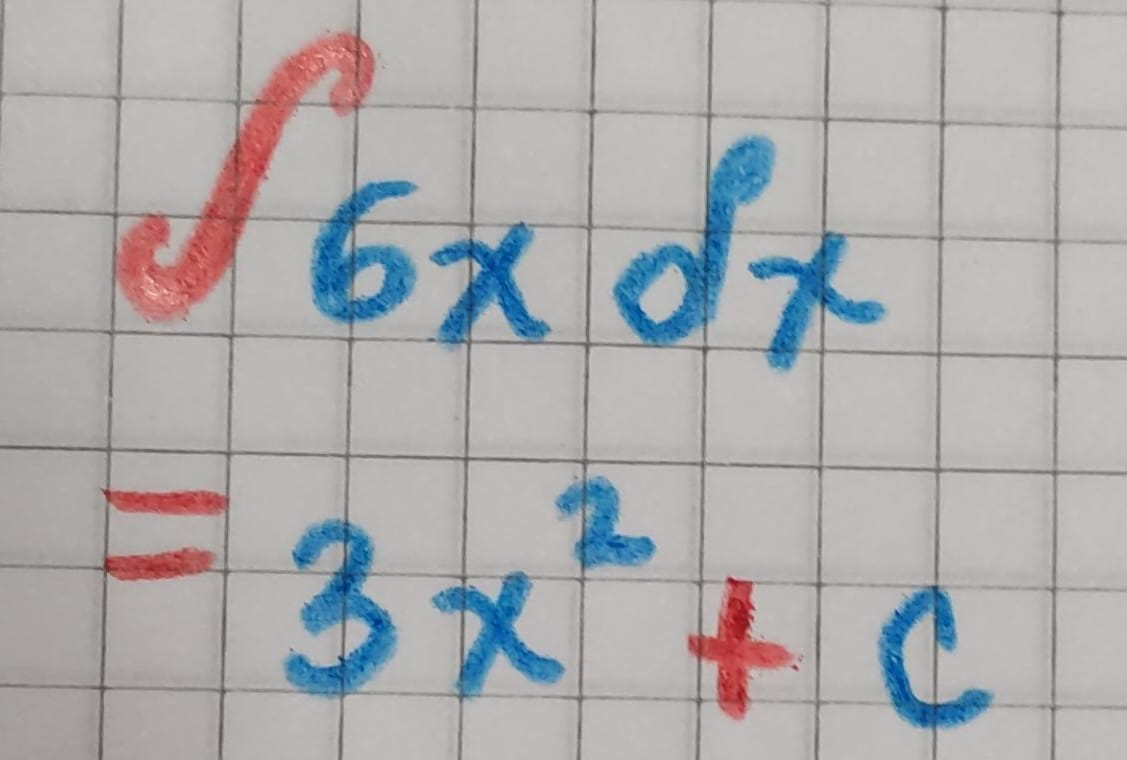 ∫ 6x dx
= 3x² + c